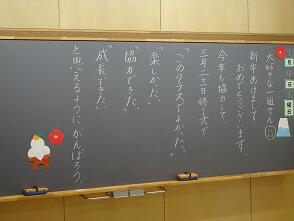 大好きな一組さん
新年あけまして
おめでとうございます。
今年も協力して
三月二十二日修了式で
「このクラスでよかった。」
「楽しかった。」
「協力できた。」
「成長できた。」
と思えるようにがんばろう。
月
日
曜日